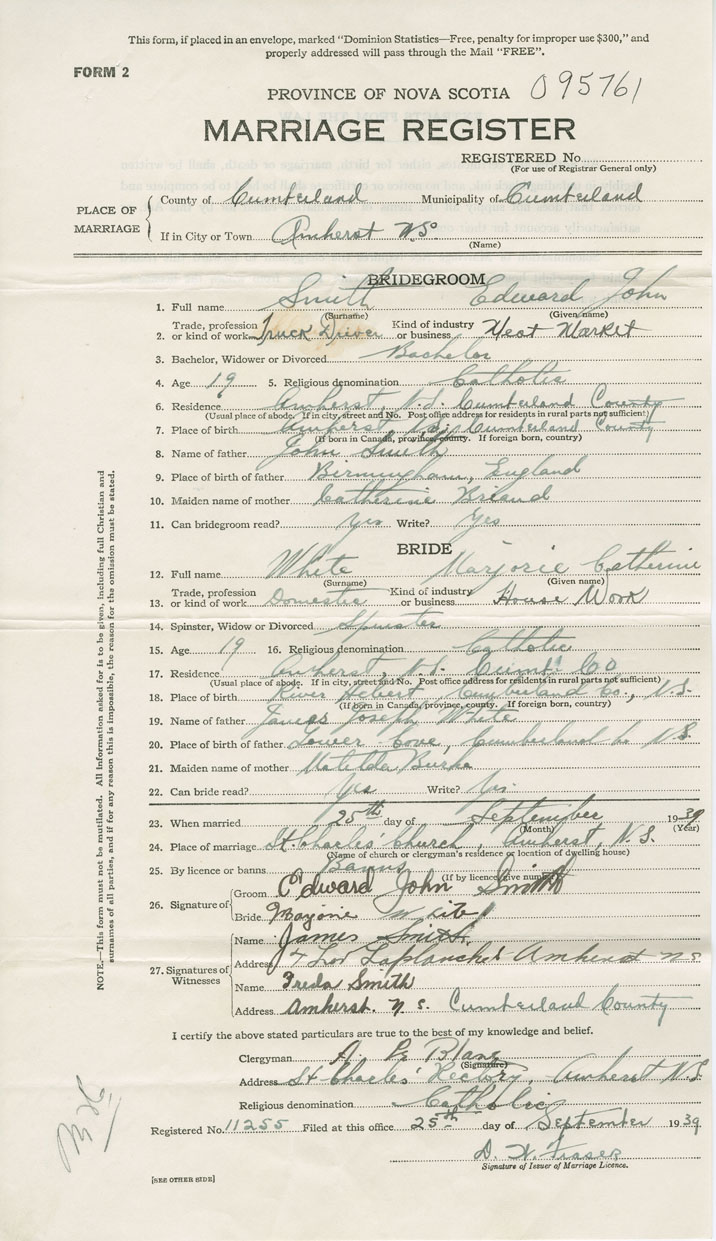 This form, if placed in an envelope, marked "Dominion Statistics—Free, penalty for improper use $300," and
properly addressed will pass through the Mail "FREE".
FORM 2
PROVINCE OF NOVA SCOTIA 095761
MARRIAGE REGISTER
REGISTERED No.
(For use of Registrar General only)
PLACE OF MARRIAGE
County of Cumberland Municipality of Cumberland
If in City or Town Amherst N.S.
(Name)
BRIDEGROOM
1. Full name Smith Edward John
(Surname) (Given name)
2. Trade, profession or kind of work Truck Driver Kind of industry or business Meat Market
3. Bachelor, Widower or Divorced Bachelor
4. Age 19 5. Religious denomination Catholic
6. Residence Amherst, N.S. Cumberland County
(Usual place of abode. If in city, street and No. Post office address for residents in rural parts not sufficient)
7. Place of birth Amherst N.S. Cumberland County
(If born in Canada, province, county. If foreign born, country)
8. Name of father John Smith
9. Place of birth of father Birmingham, England
10. Maiden name of mother Catherine Briand
11. Can bridegroom read? Yes Write? Yes
BRIDE
12. Full name White Marjorie Catherine
(Surname) (Given name)
13. Trade, profession or kind of work Domestic Kind of industry or business House Work
14. Spinster, Widow or Divorced Spinster
15. Age 19 16. Religious denomination Catholic
17. Residence Amherst, N.S. Cumb. Co
(Usual place of abode. If in city, street and No. Post office address for residents in rural parts not sufficient)
18. Place of birth River Hebert Cumberland Co., N.S.
(If born in Canada, province, county. If foreign born, country)
19. Name of father James Joseph White
20. Place of birth of father Lower Cove, Cumberland Co N.S.
21. Maiden name of mother Matilda Burke
22. Can bride read? Yes Write? Yes.
23. When married 25th day of September 1939
(Month) (Year)
24. Place of marriage St. Charles' Church, Amherst, N.S.
(Name of church or clergyman's residence or location of dwelling house)
25. By licence or banns Banns
(If by licence, give number)
26. Signature of
Groom Edward John Smith
Bride Marjorie White
27. Signatures of Witnesses
Name James Smith
Address Laplanche St Amherst N S
Name Freda Smith
Address Amherst. N.S. Cumberland County
I certify the above stated particulars are true to the best of my knowledge and belief.
Clergyman A. Le Blanc
(Signature)
Address St Charles' Rectory, Amherst N.S.
Religious denomination Catholic
Registered No. 11255 Filed at this office 25th day of September 1939
Signature of Issuer of Marriage Licence.
[SEE OTHER SIDE]
NOTE.—This form must not be mutilated. All information asked for is to be given, including full Christian and
surnames of all parties, and if for any reason this is impossible, the reason for the omission must be stated.